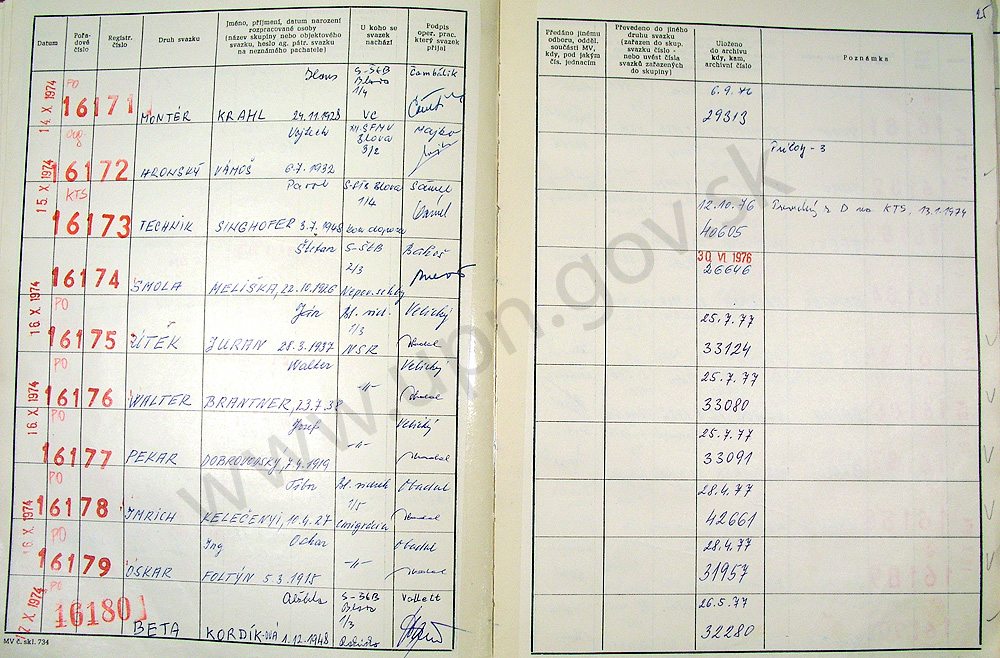 25
Datum
Pořadové číslo
Registr. číslo
Druh svazku
Jméno, příjmení, datum narození
rozpracované osoby
(název skupiny nebo objektového
svazku, heslo ag. pátr. svazku
na neznámého pachatele)
U koho se
svazek
nachází
Podpis
oper. prac.
který svazek
přijal
Předáno jinému
odboru, odděl.
součásti MV,
kdy, pod jakým
čís. jednacím
Převedeno do jiného
druhu svazku
(zařazen do skup.
svazku číslo -
nebo uvést čísla
svazků zařazených
do skupiny)
Uloženo
do archivu
kdy, kam,
archivní číslo
Poznámka
14. X. 1974 PO 16171 MONTÉR KRAHL 24.11.1928 1/4 VC
29313
16172 HRONSKÝ Vojtech VÁMOŠ 6.7.1932 Majko
Prílohy - 3
15. X. 1974 KTS 16173 TECHNIK Pavol SINGHOFER 3.7.1948 1/4
12.10.76 40605 D na KTS, 13.1.1974
16174 SMOLA Štefan MELIŠKA, 22.10.1926 S-ŠtB 2/3
30. VI. 1976 26646
16. X. 1974 PO 16175 ÚTĚK Ján JURAN 28.3.1937 1/3 NSR Velický
25.7.77 33124
PO 16176 WALTER Walter BRANTNER, 23.7.38 -"- Velický
25.7.77 33080
16. X. 1974 PO 16177 PEKAR Jozef DOBROVODSKÝ, 7.4.1919 -"- Velický
25.7.77 33091
PO 16178 IMRICH Tibor KELEČENYI, 10.4.27 1/5 emigrácia Obadal
28.4.77 42661
16. X. 1974 PO 16179 OSKAR Ing Oskar FOLTÝN 5.3.1918 -"- Obadal
28.4.77 31957
X. 1974 PO 16180 BETA KORDÍKOVÁ 1.12.1948 S-ŠtB 1/3
26.5.77 32280
MV č. skl. 734
www.upn.gov.sk